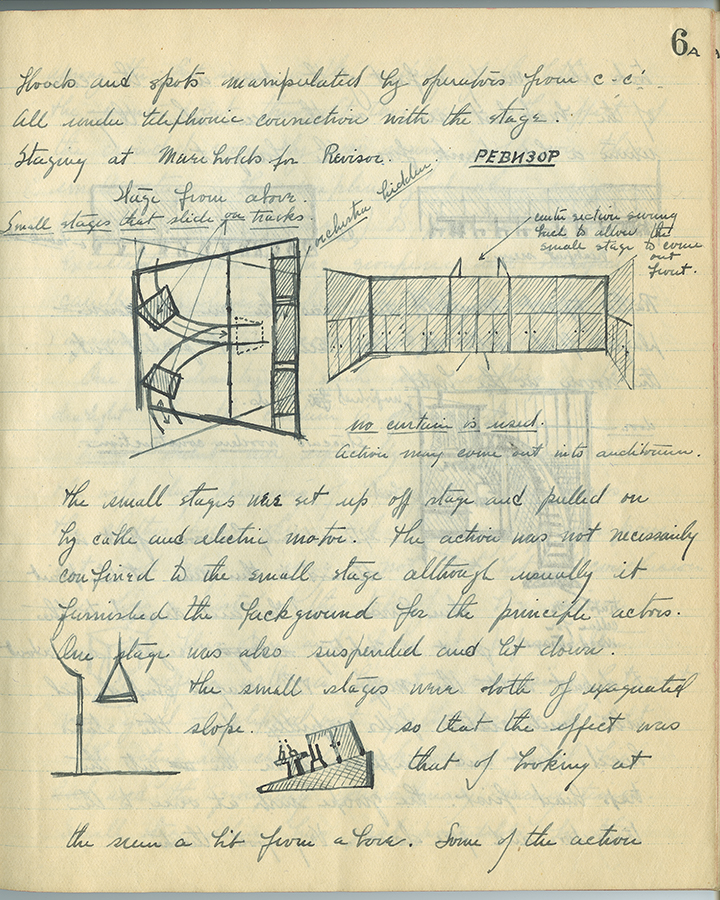 6A
Floods and spots manipulated by operators from c-c'.
All under telephonic connection with the stage.
Staging at Mereholds for Revisor. РЕВИЗОР
Stage from above.
Small stages that slide on tracks.
orchestra hidden
center section swung
back to allow the
small stage to come
out
front.
no curtain is used.
Action may come out into auditorium.
The small stages were set up off stage and pulled on
by cable and electric motor. The action was not necessarily
confined to the small stage although usually it
furnished the background for the principle actors.
One stage was also suspended and let down.
The small stages were both of exaguated
slope. so that the effect was
that of looking at
the scene a bit from above. Some of the action